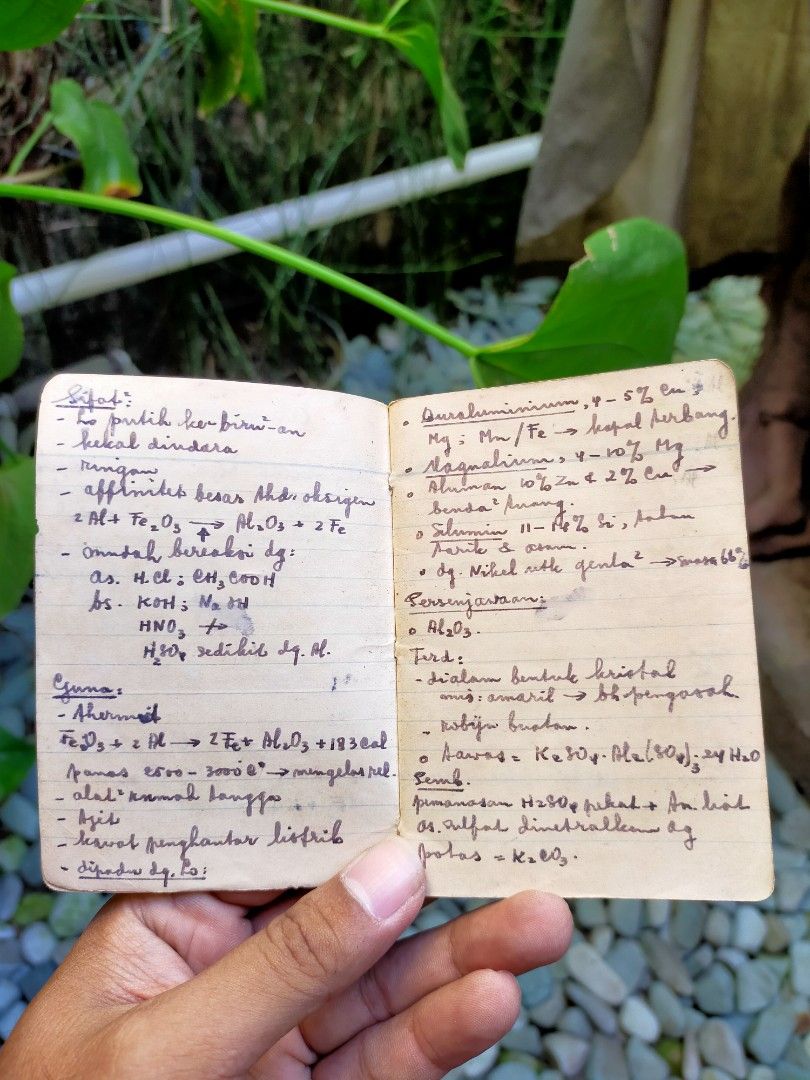 Sifat²:
- Lo putih ke-biru²-an
- kekal diudara
- ringan
- affinitet besar thd: oksigen
2 Al + Fe₂O₃ → Al₂O₃ + 2 Fe
- mudah bereaksi dg:
as. HCl ; CH₃COOH
bs. KOH ; NaOH
HNO₃ ↛
H₂SO₄ sedikit dg. Al.
Guna:
- thermit
Fe₂O₃ + 2 Al → 2 Fe + Al₂O₃ + 183 cal
panas 2500 - 3000 C° → mengelas rel.
- alat² rumah tangga
- kawat penghantar listrik
- dipadu dg. Lo:
• Duraluminium, 4 - 5% Cu ;
Mg ; Mn / Fe → kapal terbang.
• Magnalium, 4 - 10% Mg
• Aluman 10% Zn & 2% Cu →
benda² tuang.
• Silumin 11 - 14% Si, tahan
tarik & asam.
• dg. Nikel utk genta² →
Persenjawaan:
• Al₂O₃.
Terd:
- dialam bentuk kristal
mis: amaril → bh pengasah.
- robijn buatan.
• tawas = K₂SO₄. Al₂(SO₄)₃ 24 H₂O
Pemb.
pemanasan H₂SO₄ pekat + liat
as. sulfat dinetralkan dg
potas = K₂CO₃.